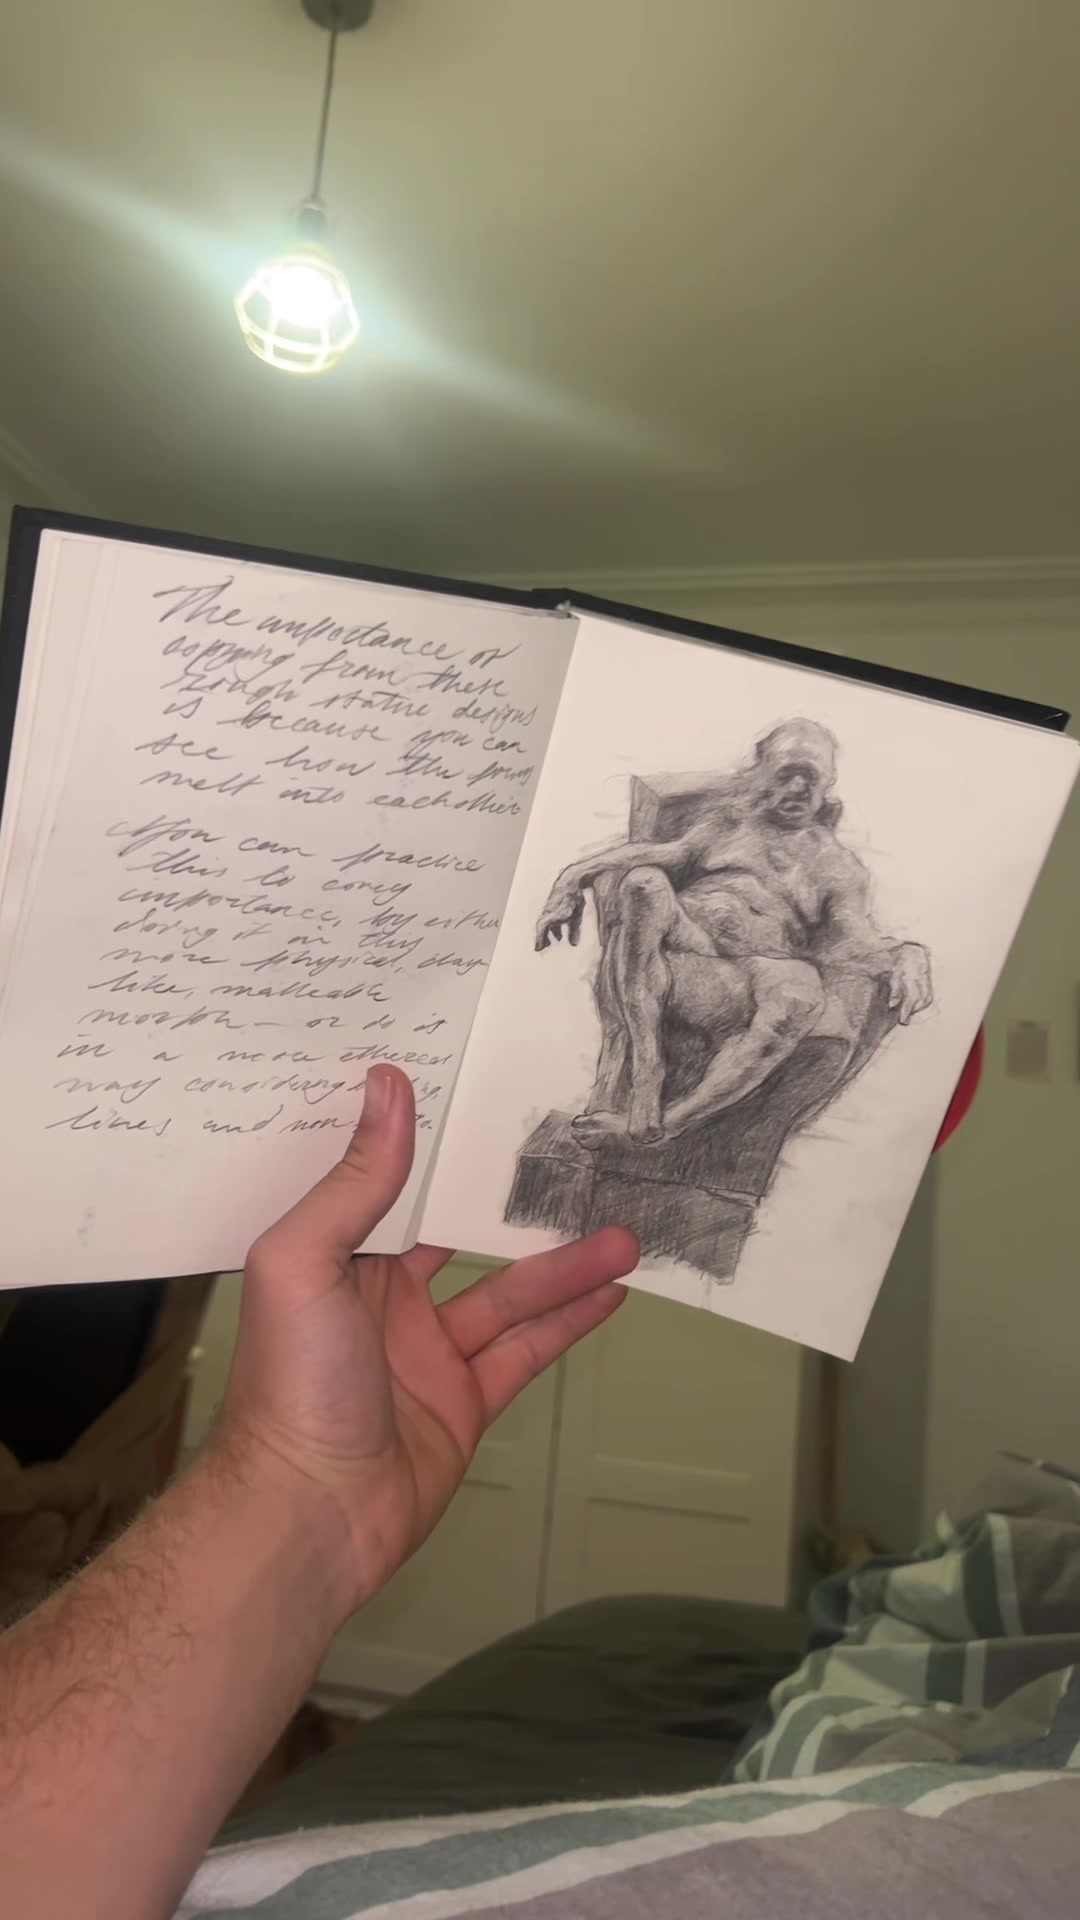 The importance of
copying from these
rough statue designs
is because you can
see how the forms
melt into eachother
You can practice
this to convey
importance, by either
doing it in this
more physical, clay
like, malleable
morph — or do it
in a more ethereal
way considering
lines and non